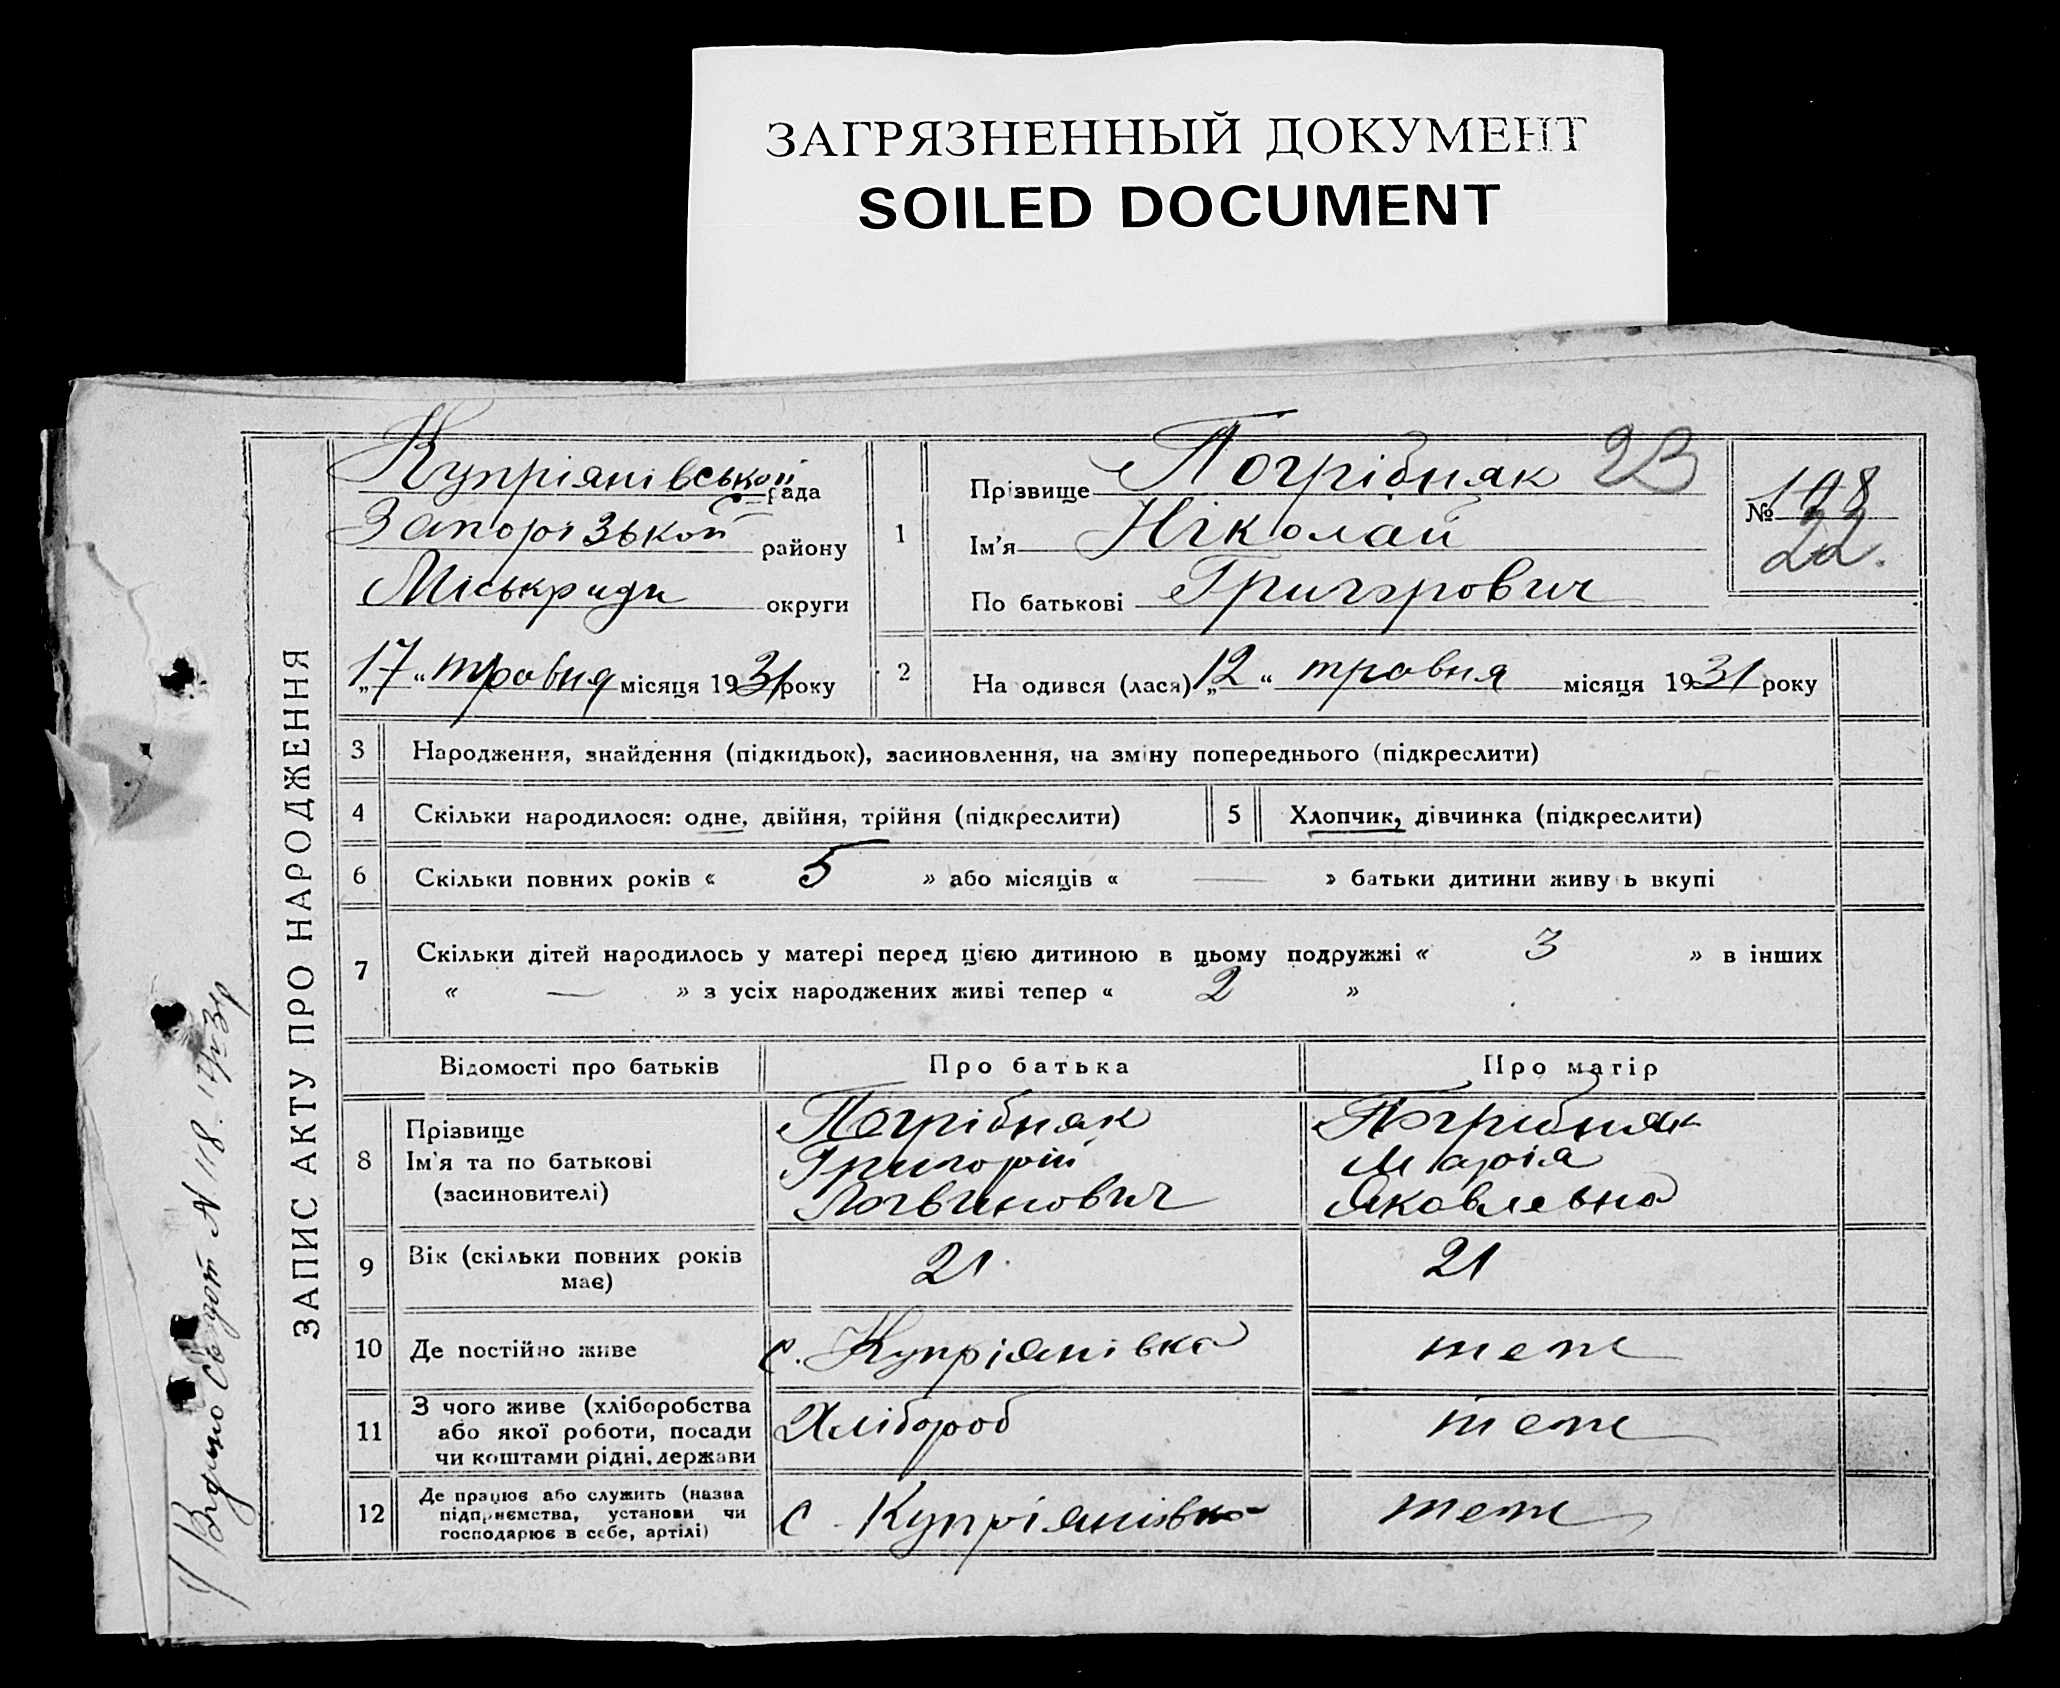 ЗАГРЯЗНЕННЫЙ ДОКУМЕНТ
SOILED DOCUMENT
ЗАПИС АКТУ ПРО НАРОДЖЕННЯ
Купріянівської рада
Запорізької району
Міськради округи
„17“ травня місяця 1931 року
1
Прізвище Погрібняк 23
Ім'я Ніколай
По батькові Григорович
№ 108
22.
2
На одився (лася) „12“ травня місяця 1931 року
3 Народження, знайдення (підкидьок), засиновлення, на зміну попереднього (підкреслити)
4 Скільки народилося: одне, двійня, трійня (підкреслити) 5 Хлопчик, дівчинка (підкреслити)
6 Скільки повних років « 5 » або місяців « — » батьки дитини живу ь вкупі
7 Скільки дітей народилось у матері перед цією дитиною в цьому подружжі « 3 » в інших
« — » з усіх народжених живі тепер « 2 »
Відомості про батьків Про батька Про матір
8 Прізвище Погрібняк Погрібняк
Ім'я та по батькові Григорій Марія
(засиновителі) Логвинович Яковлевна
9 Вік (скільки повних років 21. 21
має)
10 Де постійно живе с. Купріянівка теж
11 З чого живе (хліборобства Хлібороб теж
або якої роботи, посади
чи коштами рідні, держави
12 Де працює або служить (назва с. Купріянівка теж
підприємства, установи чи
господарює в себе, артілі)
Видано Свідот N 118